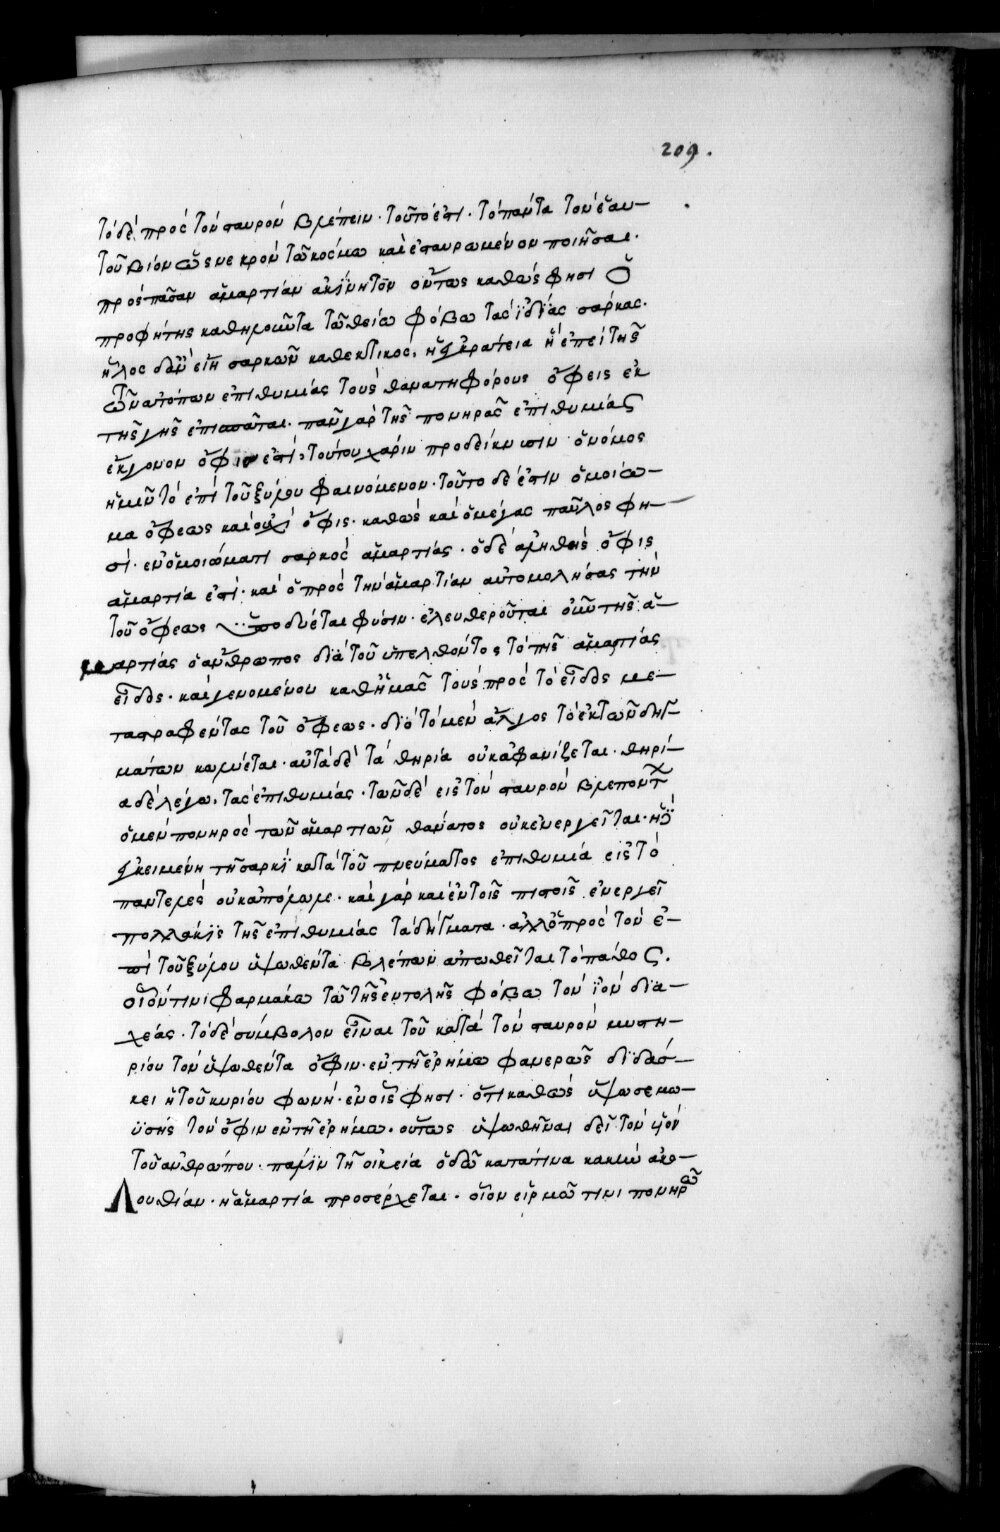 209.
τὸ δὲ πρὸς τὸν σταυρὸν βλέπειν· τοῦτό ἐστι· τὸ πάντα τὸν ἑαυ-
τοῦ βίον ὡς νεκρὸν τῶ κόσμω καὶ ἐσταυρωμένον ποιῆσαι·
πρὸς πᾶσαν ἁμαρτίαν ἀκίνητον οὕτως καθώς φησι ὁ
προφήτης καθηλοῦντα τῶ θείω φόβω τὰς ἰδίας σάρκας·
ἧλος δ' ἂν εἴη σαρκῶν καθεκτικὸς, ἡ ἐγκράτεια ἡ ἐπεὶ τῆς
τῶν ἀτόπων ἐπιθυμίας τοὺς θανατηφόρους ὄφεις ἐκ
τῆς γῆς ἐπισπᾶται· πᾶν γὰρ τῆς πονηρᾶς ἐπιθυμίας
ἔκγονον ὄφις ἐστὶ, τούτου χάριν προδείκνυσιν ὁ νόμος
ἡμῖν τὸ ἐπὶ τοῦ ξύλου φαινόμενον· τοῦτο δέ ἐστιν ὁμοίω-
μα ὄφεως καὶ οὐχὶ ὄφις· καθὼς καὶ ὁ μέγας παῦλος φη-
σί· ἐν ὁμοιώματι σαρκὸς ἁμαρτίας· ὁ δὲ ἀληθὴς ὄφις
ἁμαρτία ἐστί· καὶ ὁ πρὸς τὴν ἁμαρτίαν αὐτομολήσας τὴν
τοῦ ὄφεως ὑποδύεται φύσιν· ἐλευθεροῦται οὖν τῆς ἁ-
μαρτίας ὁ ἄνθρωπος διὰ τοῦ ὑπελθόντος τὸ τῆς ἁμαρτίας
εἶδος· καὶ γενομένου καθ' ἡμᾶς τοὺς πρὸς τὸ εἶδος με-
ταστραφέντας τοῦ ὄφεως· διὸ τὸ μὲν ἄλγος τὸ ἐκ τῶν δηγ-
μάτων κωλύεται· αὐτὰ δὲ τὰ θηρία οὐκ ἀφανίζεται· θηρί-
α δὲ λέγω, τὰς ἐπιθυμίας· τῶν δὲ εἰς τὸν σταυρὸν βλεπόντ
ὁ μὲν πονηρὸς τῶν ἁμαρτιῶν θάνατος οὐκ ἐνεργεῖται·
ἐγκειμένη τῆ σαρκὶ κατὰ τοῦ πνεύματος ἐπιθυμία εἰς τὸ
παντελὲς οὐκ ἀπόλωλε· καὶ γὰρ καὶ ἐν τοῖς πιστοῖς ἐνεργεῖ
πολλάκις τῆς ἐπιθυμίας τὰ δήγματα· ἀλλ' ὁ πρὸς τὸν ἐ-
πὶ τοῦ ξύλου ὑψωθέντα βλέπων ἀπωθεῖται τὸ πάθος.
οἷόν τινι φαρμάκω τῶ τῆς ἐντολῆς φόβω τὸν ἰὸν δια-
χέας· τὸ δὲ σύμβολον εἶναι τοῦ κατὰ τὸν σταυρὸν μυστη-
ρίου τὸν ὑψωθέντα ὄφιν· ἐν τῆ ἐρήμω φανερῶς διδάσ-
κει ἡ τοῦ κυρίου φωνή· ἐν οἷς φησι· ὅτι καθὼς ὕψωσε μω-
ϋσῆς τὸν ὄφιν ἐν τῆ ἐρήμω· οὕτως ὑψωθῆναι δεῖ τὸν υἱὸν
τοῦ ἀνθρώπου· πάλιν τῆ οἰκεία ὁδῶ κατά τινα κακὴν ἀκο-
λουθίαν· ἡ ἁμαρτία προσέρχεται· οἷον εἱρμῶ τινι πονηρῶ